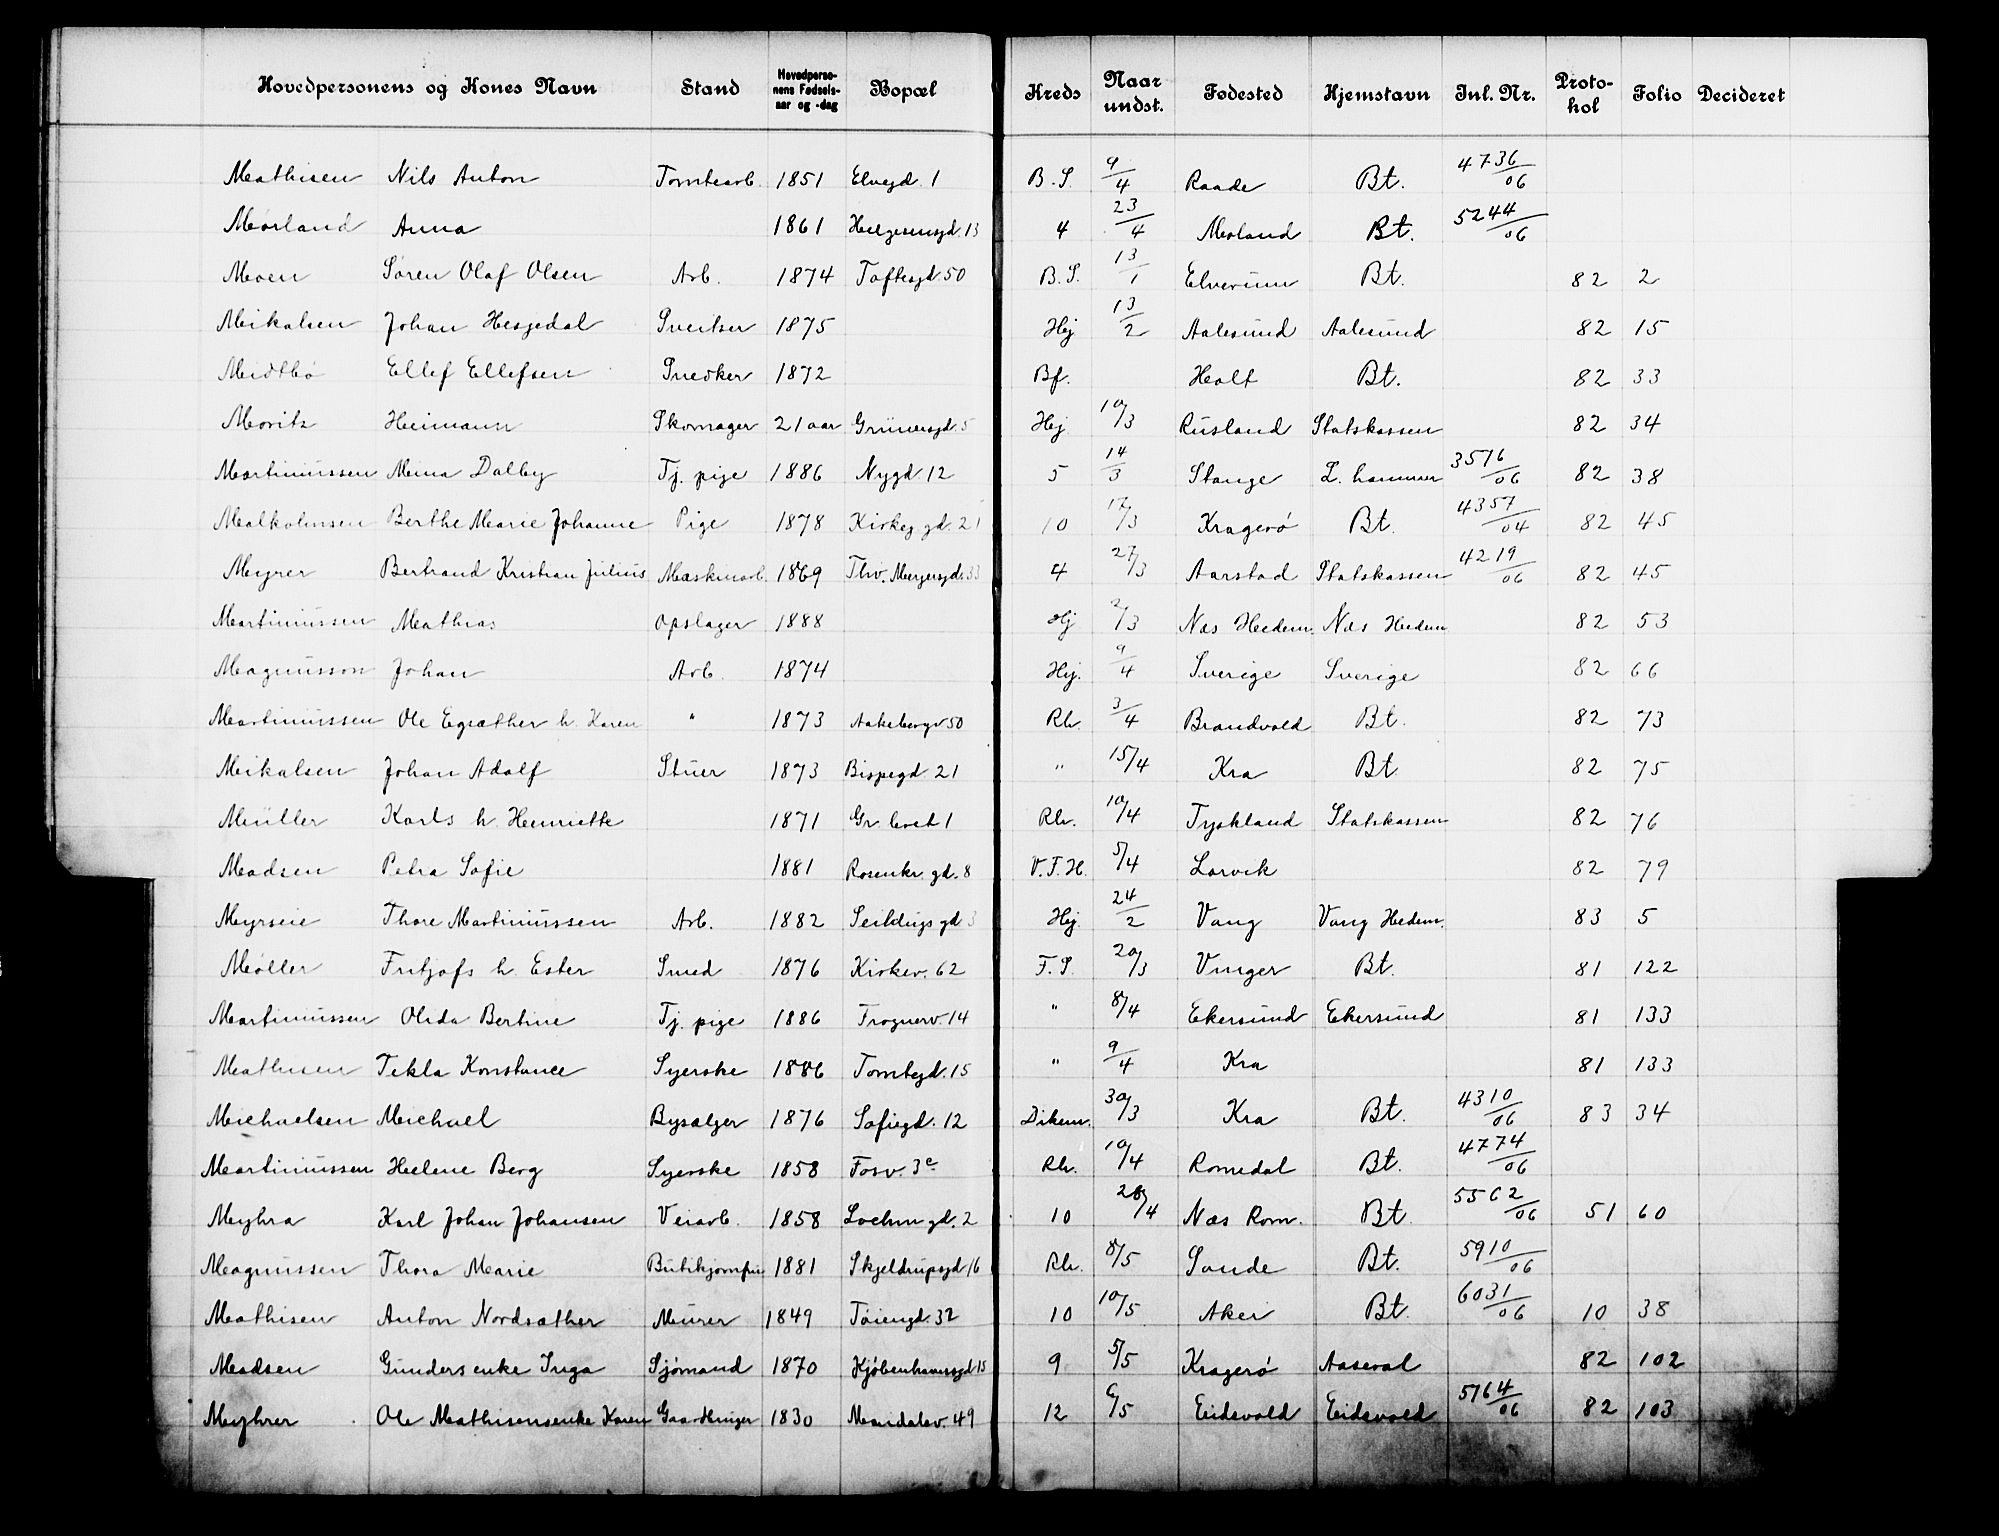 Hovedpersonens og Kones Navn Stand Hovedpersonens Fødselsaar og -dag Bopæl Kreds Naar undst. Fødested Hjemstavn Inl. Nr. Protokol Folio Decideret
Mathisen Nils Anton Tomtearb. 1851 Elvegd. 1 B.S. 9/4 Raade Bt. 4736/06
Mørland Anna 1861 Helgesensgd. 13 4 23/4 Moland Bt. 5244/06
Moen Søren Olaf Olsen Arb. 1874 Toftesgd. 50 B.S. 13/1 Elverum Bt. 82 2
Mikalsen Johan Hesgedal Sveitser 1875 Hej 13/2 Aalesund Aalesund 82 15
Midtbø Ellef Ellefsen Snedker 1872 Bf. Holt Bt. 82 33
Moritz Heimann Skomager 21 aar Grünersgd. 5 Hej 10/3 Rusland Statskassen 82 34
Martinussen Mina Dalby Tj. pige 1886 Nygd. 12 5 14/3 Stange L. hammer 3576/06 82 38
Malkolmsen Berthe Marie Johanne Pige 1878 Kirkeg gd. 21 10 17/3 Kragerø Bt. 4357/04 82 45
Myrer Bertrand Kristian Julius Maskinarb. 1869 Thv. Meyersgd. 33 4 27/3 Aarstad Statskassen 4219/06 82 45
Martinussen Mathias Opslager 1888 Hj 2/3 Næs Hedem. Næs Hedem 82 53
Magnusson Johan Arb. 1874 Hej. 9/4 Sverige Sverige 82 66
Martinussen Ole Egsæther h. Karen " 1873 Aakebergv 50 Rh. 3/4 Brandvold Bt. 82 73
Mikalsen Johan Adolf Stuer 1873 Bispegd. 21 " 15/4 Kra Bt. 82 75
Müller Karls h. Henriette 1871 Gr. levet 1 Rh. 10/4 Tyskland Statskassen 82 76
Madsen Petra Sofie 1881 Rosenkr. gd. 8 V.F.H. 5/4 Larvik 82 79
Myrseie Thore Martinussen Arb. 1882 Seildugs gd 3 Hej. 24/2 Vang Vang Hedem. 83 5
Møller Fritjofs h. Ester Smed 1876 Kirkev. 62 F.S. 20/3 Vinger Bt. 81 122
Martinussen Olida Bertine Tj. pige 1886 Frognerv. 14 " 8/4 Ekersund Ekersund 81 133
Mathisen Tekla Konstance Syerske 1886 Tomtegd. 15 " 9/4 Kra 81 133
Michaelsen Michael Bysælger 1876 Sofiegd. 12 Dikem. 30/3 Kra Bt. 4310/06 83 34
Martinussen Helene Berg Syerske 1858 Fosv. 3c Rh. 10/4 Romedal Bt. 4774/06
Myhra Karl Johan Johansen Veiarb. 1858 Lochm gd. 2 10 28/4 Næs Rom. Bt. 5562/06 51 60
Magnussen Thora Marie Butikjomfru 1881 Skjeldrupsgd 16 Rh. 8/5 Sande Bt. 5910/06
Mathisen Anton Nordsæther Murer 1849 Tøiengd. 32 10 10/5 Aker Bt. 6031/06 10 38
Madsen Gunders enke Inga Sjømand 1870 Kjøbenhavnsgd 15 9 5/5 Kragerø Aaseral 82 102
Myhrer Ole Mathisens enke Karen Gaardbruger 1830 Maridalsv. 49 12 6/5 Eidsvold Eidsvold 5764/06 82 103